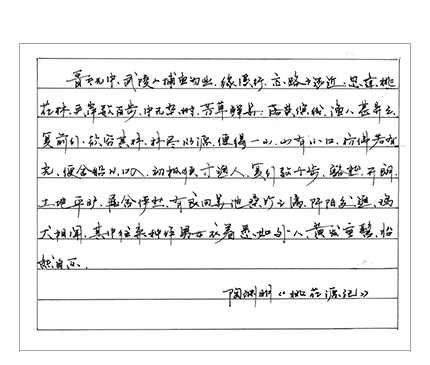 晋太元中,武陵人捕鱼为业,缘溪行,忘路之远近,忽逢桃
花林,夹岸数百步,中无杂树,芳草鲜美,落英缤纷,渔人甚异之,
复前行,欲穷其林,林尽水源,便得一山,山有小口,仿佛若有
光,便舍船从口入,初极狭,才通人,复行数十步,豁然开朗,
土地平旷,屋舍俨然,有良田美池桑竹之属,阡陌交通,鸡
犬相闻,其中往来种作男女衣着悉如外人,黄发垂髫,怡
然自乐。
陶渊明《桃花源记》